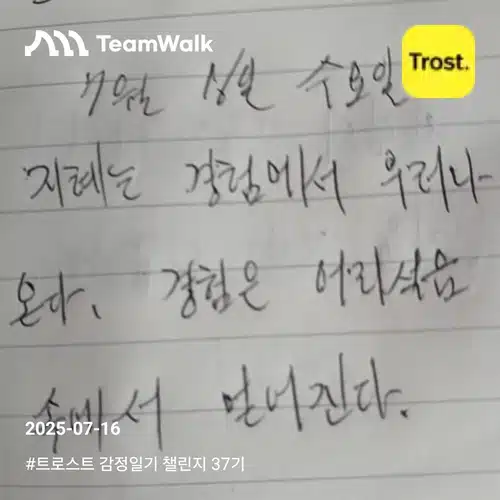 TeamWalk
Trost.
7월 16일 수요일
지혜는 경험에서 우러나
온다. 경험은 어리석음
속에서 얻어진다.
2025-07-16
#트로스트 감정일기 챌린지 37기